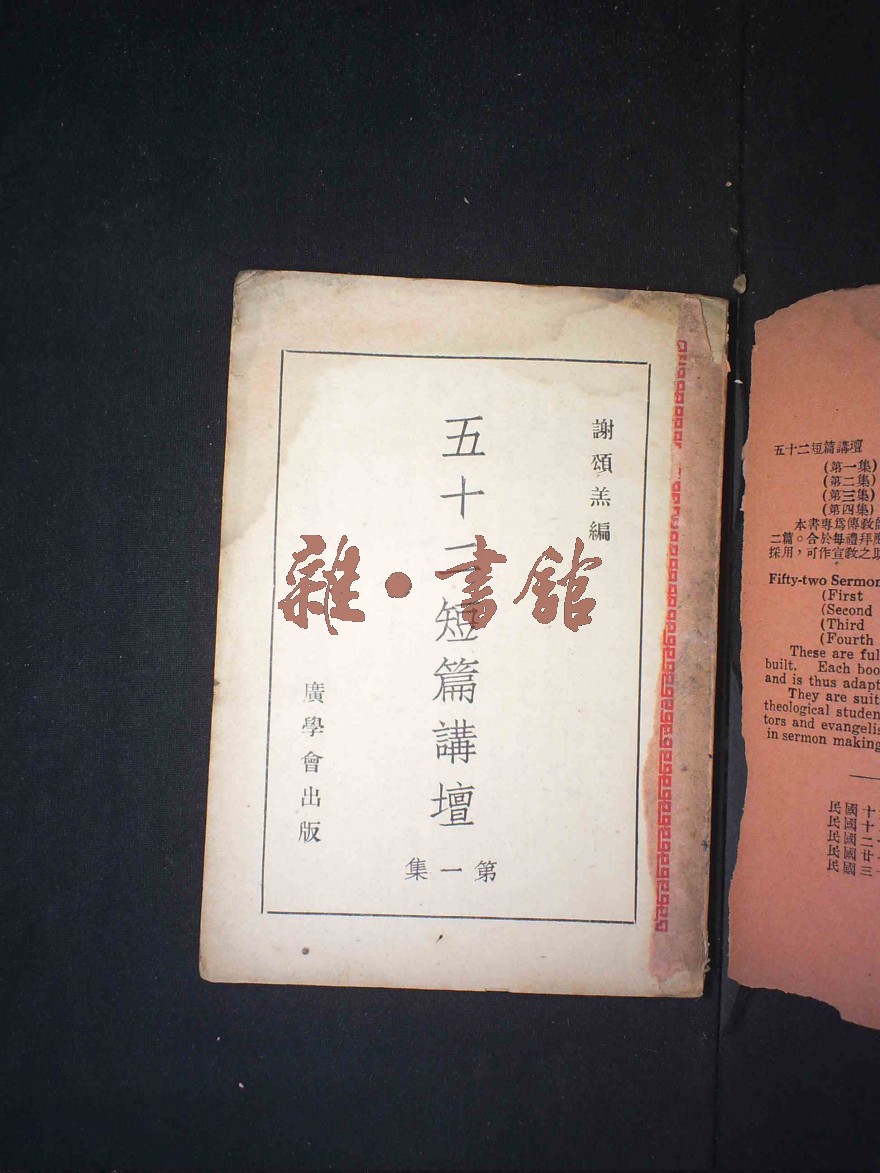 謝頌羔編
五十二短篇講壇
第一集
廣學會出版
雜·書館
五十二短篇講壇
(第一集)
(第二集)
(第三集)
(第四集)
本書專爲傳敎
二篇。合於每禮拜
採用,可作宣敎之
Fifty-two Sermon
(First
(Second
(Third
(Fourth
These are ful
built. Each boo
and is thus adapt
They are suit
theological studen
tors and evangelis
in sermon making
民國十
民國十
民國二
民國廿
民國三